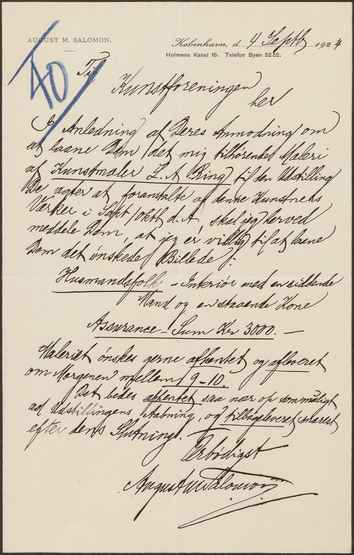 AUGUST M. SALOMON.
København, d. 4 Septb 1924
Holmens Kanal 16. Telefon Byen 52.52.
40
Til
Kunstforeningen
her
I Anledning af Deres Anmodning om
at laane Dem det mig tilhørende Maleri
af Kunstmaler L. A. Ring til den Udstilling
De agter at foranstalte af denne Kunstners
Værker i Sept Oktb d. A. skal jeg herved
meddele Dem, at jeg er villig til at laane
Dem det ønskede Billede:
Husmandsfolk – Interiør med en siddende
Mand og en staaende Kone
Assurance-Sum Kr 3000.–
Maleriet ønskes gerne afhentet og afleveret
om Morgenen mellem 9–10.
Det bedes afhentet saa nær op som muligt
ad Udstillingens Aabning, og tilbageleveret snarest
efter dens Slutning.
Ærbødigst
August M Salomon